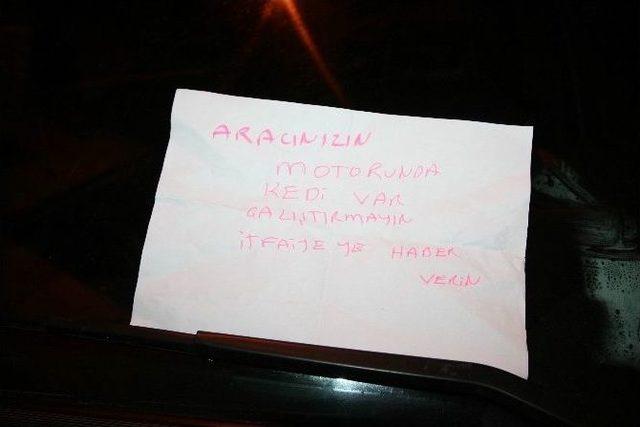 ARACINIZIN
MOTORUNDA
KEDİ VAR
ÇALIŞTIRMAYIN
İTFAİYE YE HABER
VERİN